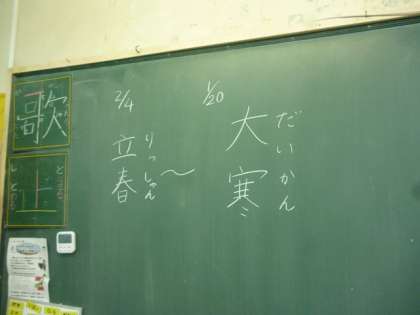 1/20
大寒
だいかん
〜
2/4
立春
りっしゅん
歌
止